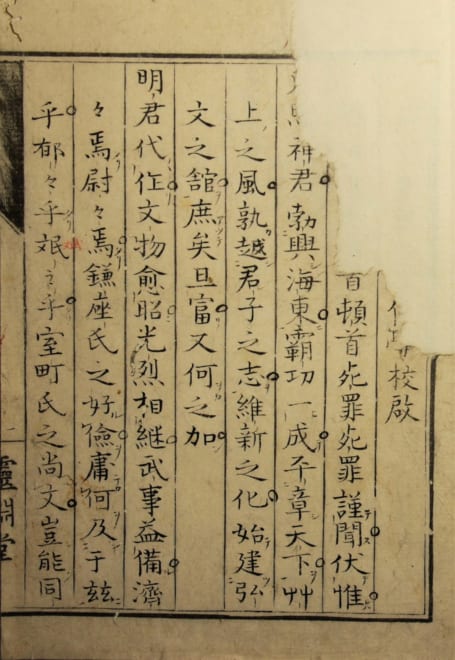 校啟
百頓首死罪死罪謹聞伏惟
神君勃興海東霸功一成平章天下艸
上之風孰越君子之志維新之化始建弘
文之舘庶矣且富又何之加
明君代作文物愈昭光烈相継武事益備濟
々焉尉々焉鎌座氏之好儉庸何及于玆
乎郁々乎々乎室町氏之尚文豈能同
堂